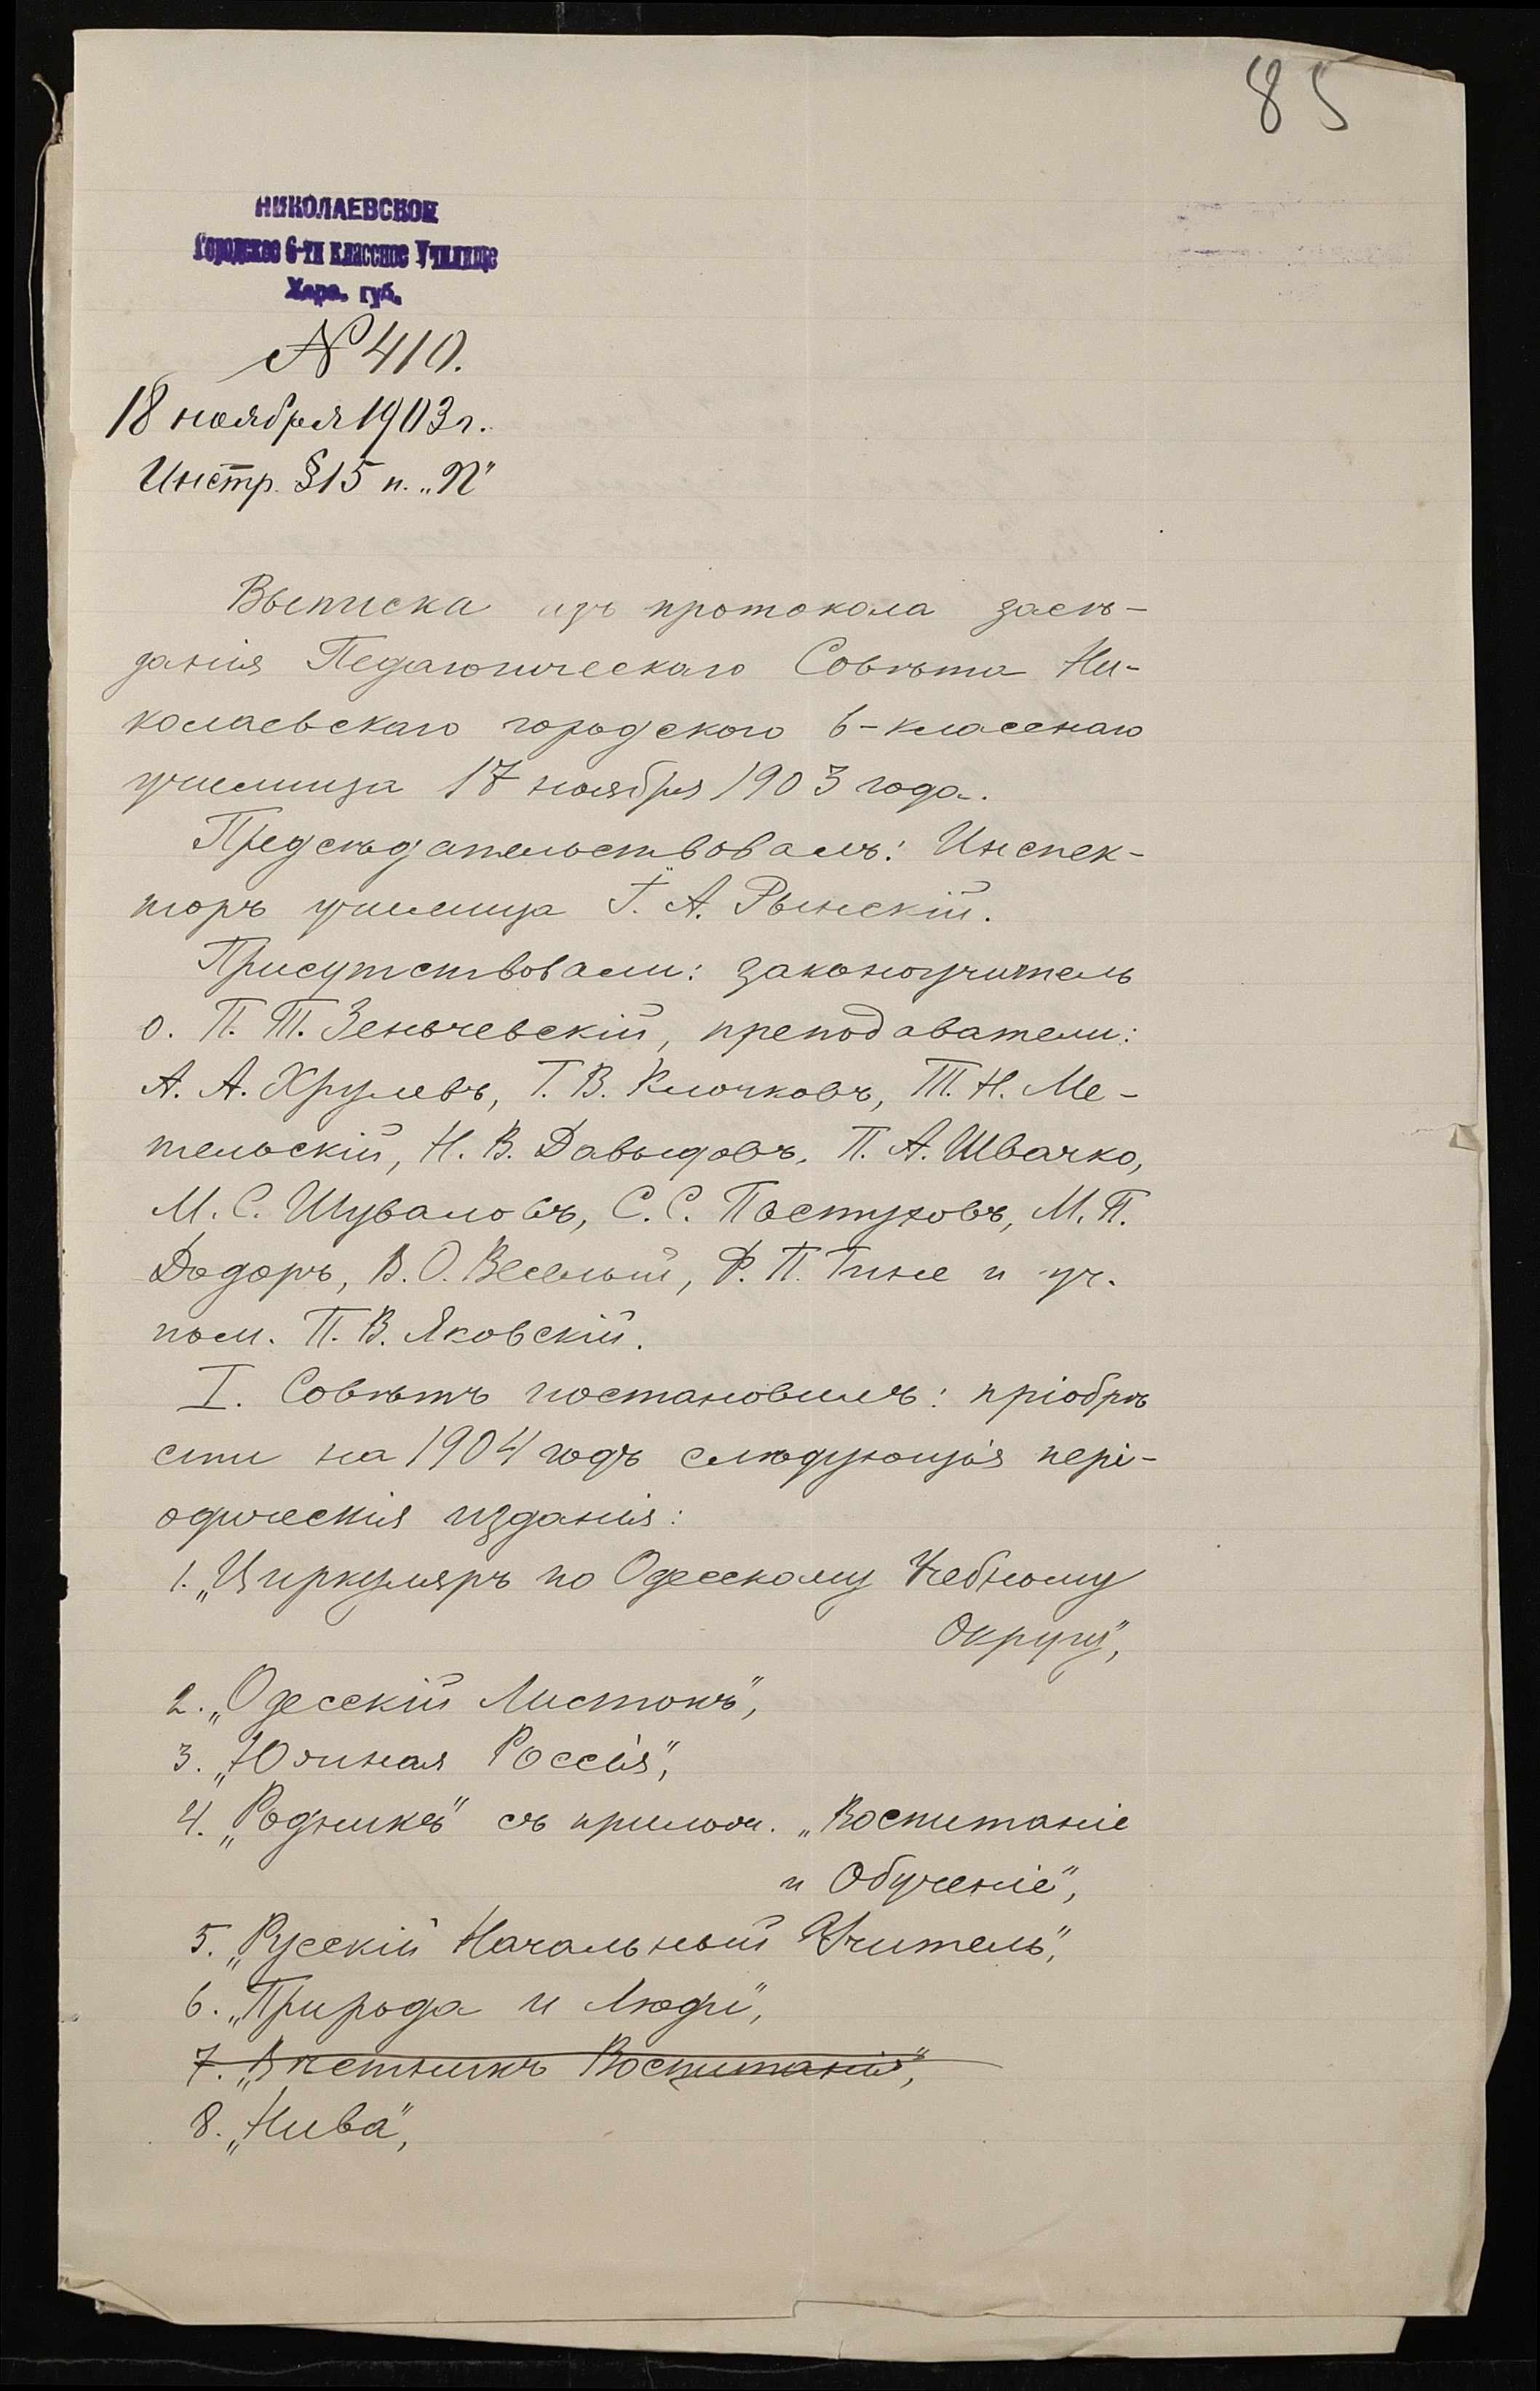 85
НИКОЛАЕВСКОЕ
Городское 6-ти классное Училище
Херс. губ.
№ 410.
18 ноября 1903 г.
Инстр. §15 п. „Л"
Выписка изъ протокола засѣ-
данія Педагогическаго Совѣта Ни-
колаевскаго городского 6-класснаго
училища 17 ноября 1903 года.
Предсѣдательствовалъ: Инспек-
торъ училища Ѳ. А. Рынскій.
Присутствовали: законоучитель
о. П. Т. Зеньчевскій, преподаватели:
А. А. Хрулевъ, Г. В. Клочковъ, Т. Н. Ме-
тельскій, Н. В. Давыдовъ, П. А. Швачко,
М. С. Шуваловъ, С. С. Пастуховъ, М. П.
Додоръ, В. О. Веселый, Ф. П. Гине и уч.
пом. П. В. Яковскій.
I. Совѣтъ постановилъ: пріобрѣ
сти на 1904 годъ слѣдующія пері-
одическія изданія:
1. „Циркуляръ по Одесскому Учебному
Округу",
2. „Одесскій Листокъ",
3. „Южная Россія",
4. „Родникъ" съ прилож. „Воспитаніе
и Обученіе",
5. „Русскій Начальный Учитель",
6. „Природа и Люди",
7. „Вѣстникъ Воспитанія",
8. „Нива",